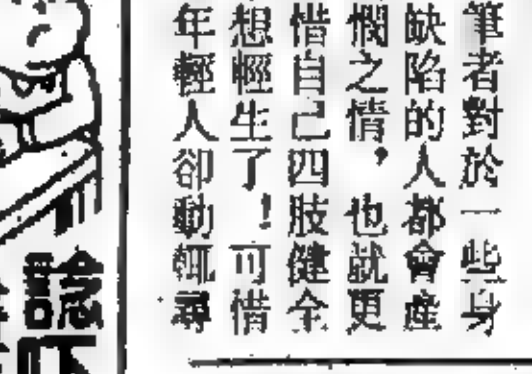 筆者對於一些身
缺陷的人都會產
憫之情，也就更
惜自己四肢健全
想輕生了！可惜
年輕人卻動輒尋
諗